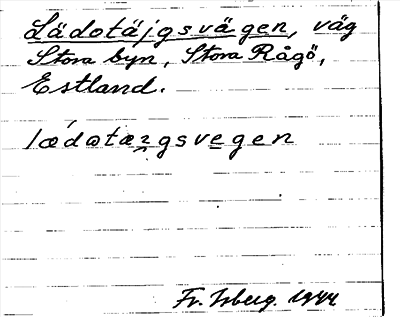 Lädotäjgsvägen, väg
Stora byn, Stora Rågö,
Estland.
lædotæꞃgsvegen
Fr. Isberg. 1944